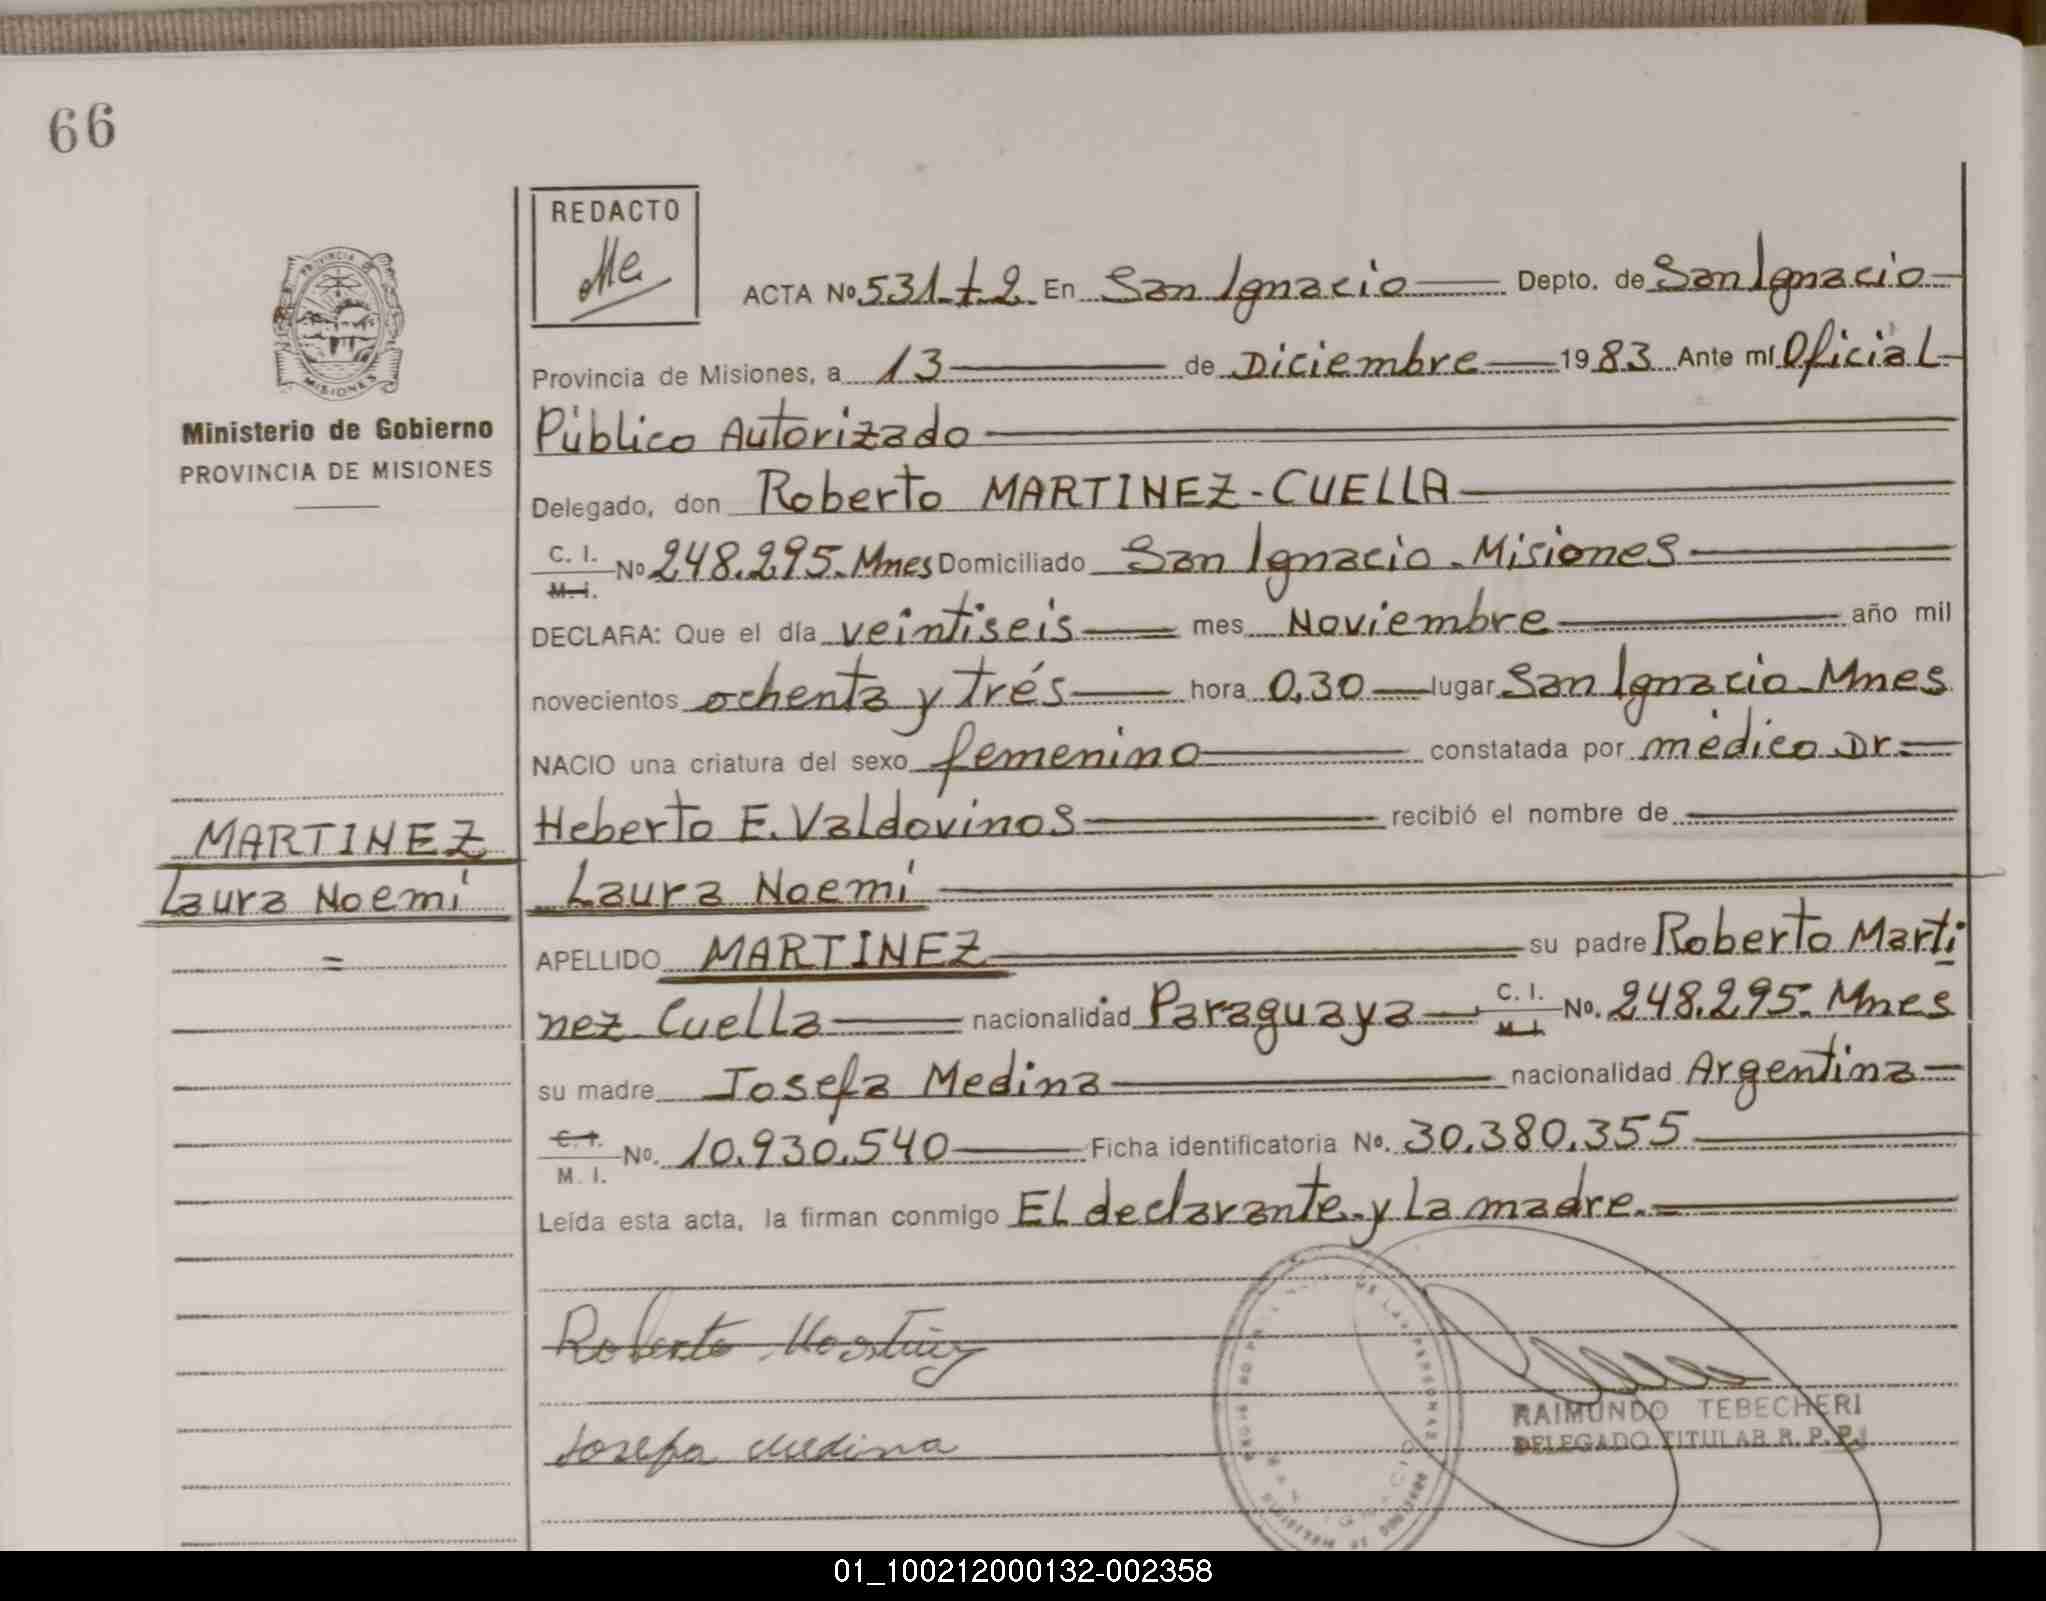 66
REDACTO
Me
ACTA Nº 531-t-2 En San Ignacio Depto. de San Ignacio
Provincia de Misiones, a 13 de Diciembre 1983 Ante mí Oficial
Público Autorizado
Ministerio de Gobierno
PROVINCIA DE MISIONES
Delegado, don Roberto MARTINEZ-CUELLA
C. I.
M. I. Nº 248.295.Mnes Domiciliado San Ignacio.Misiones
DECLARA: Que el día veintiseis mes Noviembre año mil
novecientos ochenta y trés hora 0,30 lugar San Ignacio-Mnes
NACIO una criatura del sexo femenino constatada por médico Dr.
Heberto E. Valdovinos recibió el nombre de
MARTINEZ
Laura Noemí
=
Laura Noemí
APELLIDO MARTINEZ su padre Roberto Marti
nez Cuella nacionalidad Paraguaya C. I. M. I. No. 248.295. Mnes
su madre Josefa Medina nacionalidad Argentina
C. I.
M. I. No. 10.930.540 Ficha identificatoria No. 30.380.355
Leída esta acta, la firman conmigo El declarante y La madre.=
Roberto Martinez
Josefa Medina
RAIMUNDO TEBECHERI
DELEGADO TITULAR R. P. P.
01_100212000132-002358